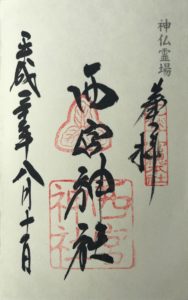 神仏霊場
奉拝
西宮神社
西宮
神社
平成二十年八月十一日